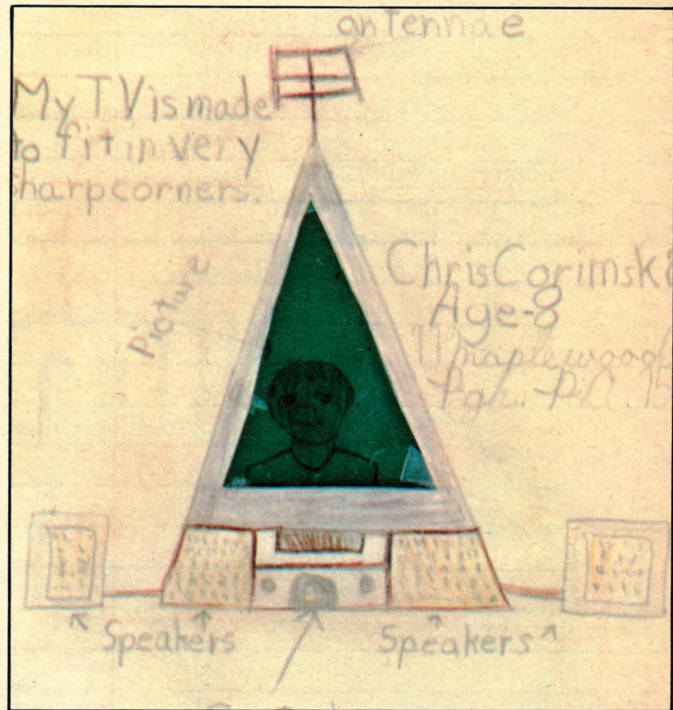 antennae
My TV is made
to fit in very
sharp corners.
Picture
Chris
Age-8
maplewood
Pgh. PA. 15
Speakers
Speakers